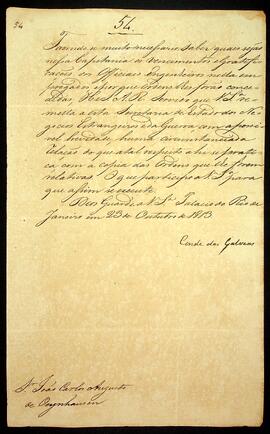 54.
54
Fazendo-se muito necessario saber quaes sejão
nessa Capitania os vencimentos e gratifi-
cações dos Officiaes Engenheiros nella em-
pregados e por que ordens lhes forão conce-
didas He S. A. R. Servido que V. Sa. re-
metta a esta Secretaria de Estado dos Ne-
gocios Estrangeiros e da Guerra com a possi-
vel brevidade huma circunstanciada
relação do que a tal respeito ahi se pratica
com a copia das Ordens que lhe forem
relativas. O que participo a V. Sa. para
que assim se execute.
Deos Guarde a V. Sa. Palacio do Rio de
Janeiro em 23 de Outubro de 1813.
Conde das Galveas
Sr. João Carlos Augusto
de Oeynhausen